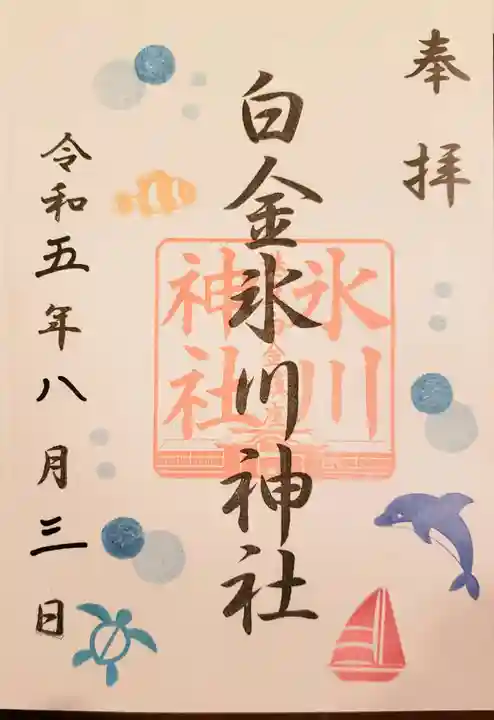 奉拝
白金氷川神社
氷川
神社
令和五年八月三日